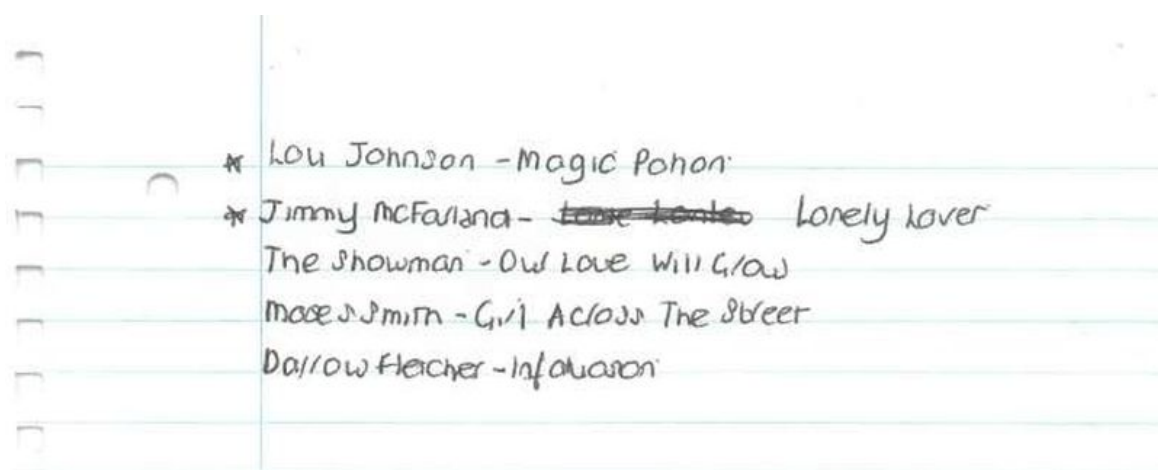 * Lou Johnson - Magic Potion
* Jimmy McFarland - Lonely Lover
The Showman - Our Love Will Grow
Moses Smith - Girl Across The Street
Darrow Fletcher - Infatuation